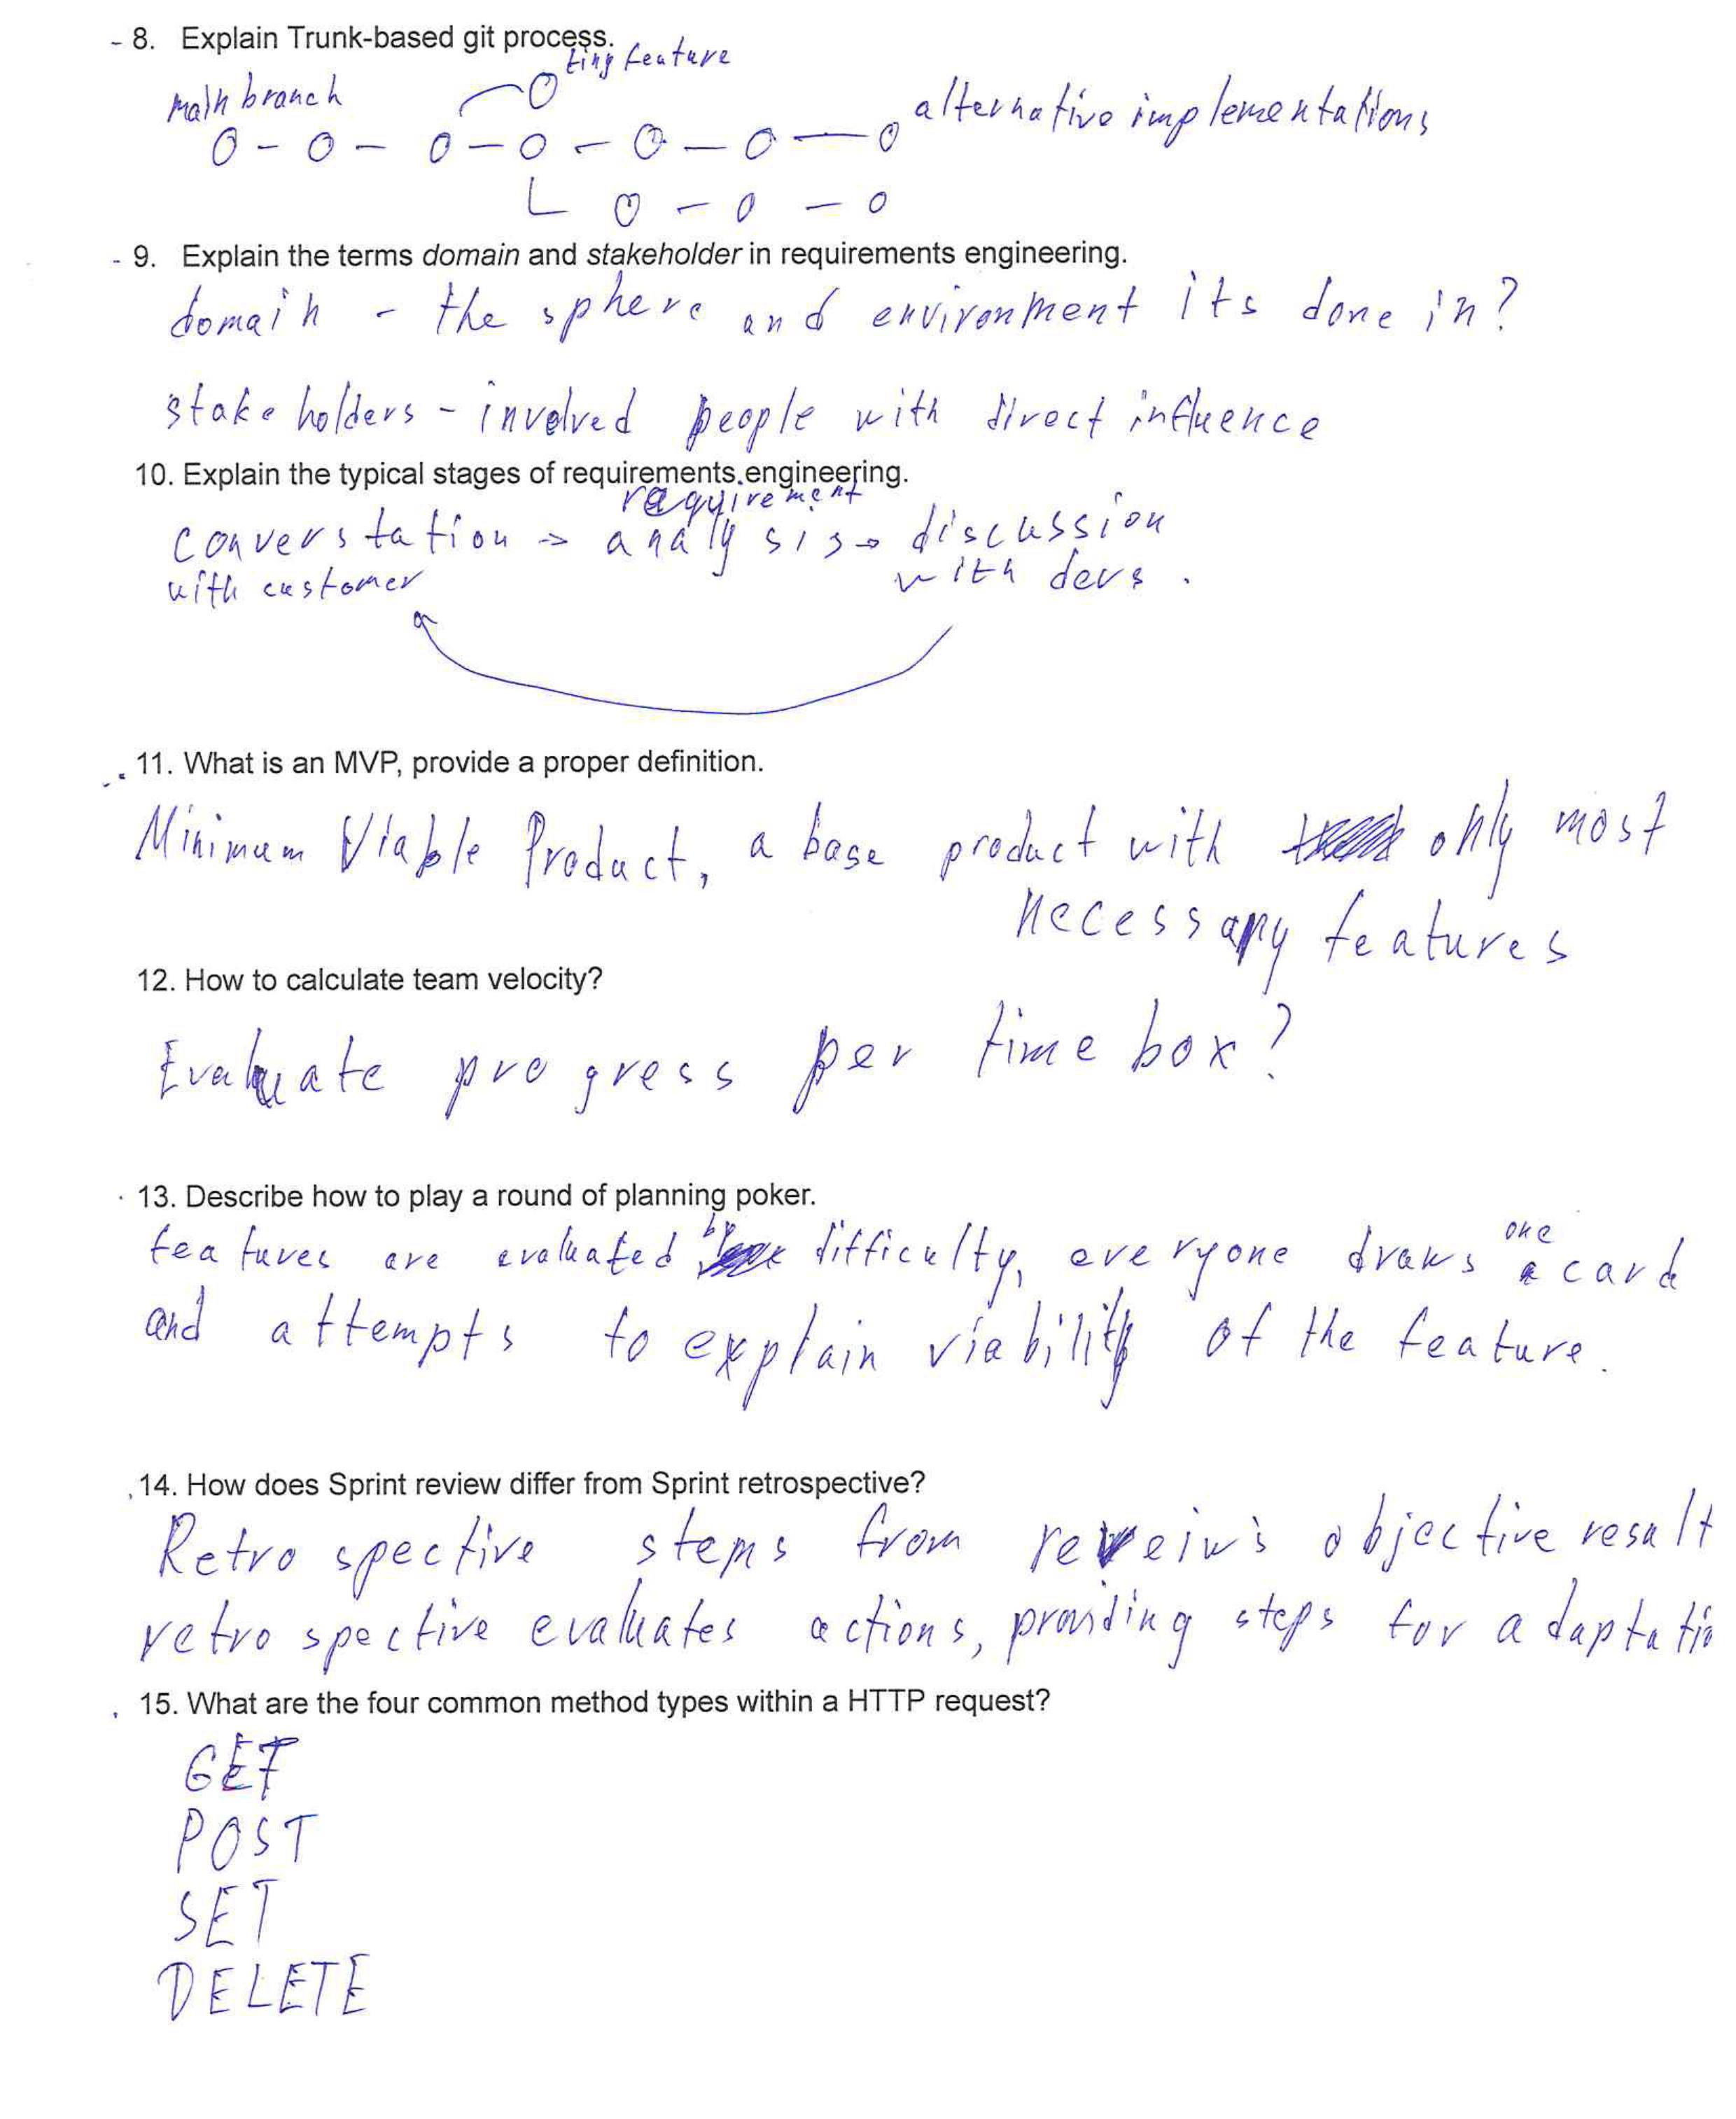 - 8. Explain Trunk-based git process.
tiny feature
main branch
alternative implementations
- 9. Explain the terms domain and stakeholder in requirements engineering.
domain - the sphere and environment its done in?
stakeholders - involved people with direct influence
10. Explain the typical stages of requirements engineering.
requirement
converstation -> analysis -> discussion
with customer with devs.
11. What is an MVP, provide a proper definition.
Minimum Viable Product, a base product with only most
necessary features
12. How to calculate team velocity?
Evaluate progress per time box?
13. Describe how to play a round of planning poker.
features are evaluated by difficulty, everyone draws one card
and attempts to explain viability of the feature.
14. How does Sprint review differ from Sprint retrospective?
Retrospective stems from reveiw's objective result
retrospective evaluates actions, providing steps for adaptatio
15. What are the four common method types within a HTTP request?
GET
POST
SET
DELETE